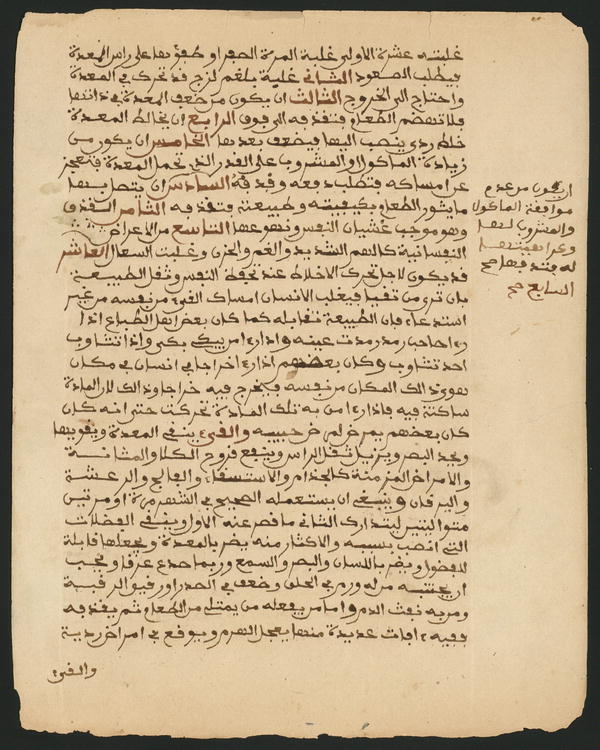 غلبته عشرة الاولى غلبة المرة الصفراو طفوها على راس المعدة
فيطلب الصعود الثانى غلبة بلغم لزج قد تحرك في المعدة
واحتاج الى الخروج الثالث ان يكون من ضعف المعدة في ذاتها
فلا تهضم الطعام وتقذفه الى فوق الرابع ان يخالط المعدة
خلط ردي ينصب اليها فيضعف بعدها الخامس ان يكون من
زيادة الماكول او المشروب على القدر الذي تحمل المعدة فتعجز
عن امساكه فتطلب دفعه وقذفه السادس ان يتصل بها
ما يشور الطعام بكيفيته وطبيعته وتقذفه الثامن التقذف
وهو موجب غثيان النفس وتهوعها التاسع من الاعراض
النفسانية كالهم الشديد والغم والحزن وغلبت السعال العاشر
قد يكون لاجل تحرك الاخلاط عند تحفظ النفس وثقل الطبيعة
بان ترى من تقيا فيغلب الانسان امساك القيء من نفسه من غير
استدعاء فان الطبيعة تقابله كما كان بعض اهل الطباع اذا
رءا صاحب رمد رمدت عينه واذا رءا من يبكي بكى واذا تثاوب
احد تثاوب وكان بعضهم اذا رءا خراجا في انسان في مكان
هوى ذالك المكان من نفسه فيخرج فيه خراجا وذالك لان المادة
ساكنة فيه فاذا رءا من به تلك المادة تحركت حتى انه كان
كان بعضهم يمرض لمرض حبيبه والقيء ينقي المعدة ويقويها
ويحد البصر ويزيل ثقل الراس وينفع قروح الكلا والمثانة
والامراض المزمنة كالجذام والاستسقاء والفالج والرعشة
واليرقان وينبغي ان يستعمله الصحيح في الشهر مرة او مرتين
متواليتين ليتدارك الثاني ما قصر عنه الاول وينقي الفضلات
التي انصب بسببه والاكثار منه يضر بالمعدة ويجعلها قابلة
للفضول ويضر بالاسنان والبصر والسمع وربما صدع عرقا ويجب
ان يجتنبه من له ورم في الحلق وضعف في الصدر او رقيق الرقبة
ومن به نفث الدم واما من يفعله من يمتلئ من الطعام ثم يقذفه
ففيه ءافات عديدة منها يعجل الهرم ويوقع في امراض ردية
والقيء
ان يكون من عدم
موافقة الماكول
والمشروب لها
وكراهيتها
له فتدفعها صح
السابع صح